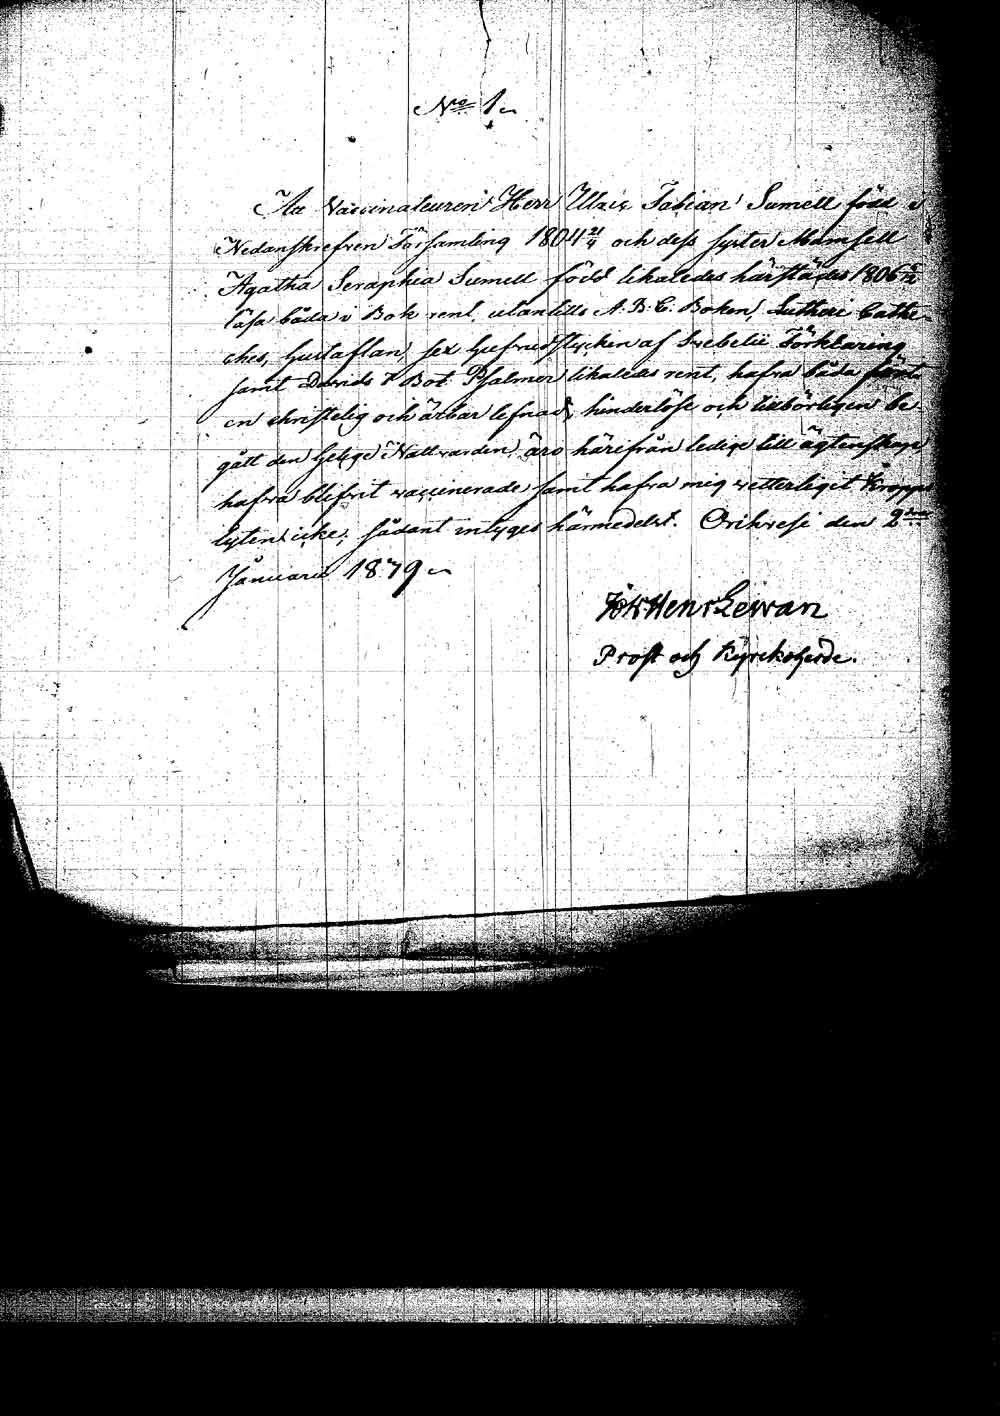 No 1
Åa Vaccinateuren Herr Ulric Fabian Sumell född i
Nedanskrefven Församling 1804 21/4 och dess syster Mamsell
Agatha Seraphia Sumell född likaledes härstädes 1806
läsa båda i Bok rent, utantills A.B.C. Boken, Lutheri Cathe-
ches, Hustaflan, sex Hufvudstycken af Svebelii Förklaring
samt Davids 7 Bot Psalmer likaledes rent, hafva båda fördt
en christelig och ärbar lefnad, hinderlöse och tillbörligen be-
gått den Helige Nattvarden, äro härifrån ledige till ägtenskap,
hafva blifvit vaccinerade samt hafva mig vetterligit Kropps
lyten icke; sådant intyges härmedelst. Orihvesi den 2
Januarii 1879
Henr Lewan
Prost och Kyrckoherde.